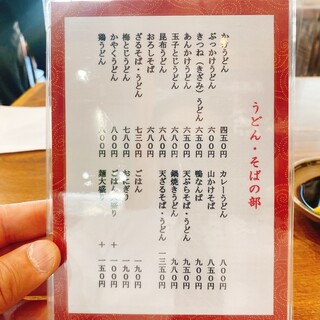 うどん・そばの部
かけうどん 四五〇円
ぶっかけうどん 六五〇円
きつね（きざみ）うどん 六五〇円
あんかけうどん 六〇〇円
玉子とじうどん 六八〇円
昆布うどん 六八〇円
おろしそば 六八〇円
ざるそば・うどん 七三〇円
梅とじうどん 七八〇円
かやくうどん 八〇〇円
鶏うどん 八〇〇円
カレーうどん 八〇〇円
山かけそば 八五〇円
鴨なんば 九五〇円
天ぷらそば・うどん 九五〇円
鍋焼きうどん 九八〇円
天ざるそば・うどん 一三五〇円
ごはん 一九〇円
おにぎり 一九〇円
ごはん 盛り ＋一〇〇円
麺大盛り ＋一五〇円